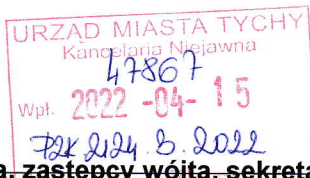 URZĄD MIASTA TYCHY
Kancelaria Niejawna
47867
Wpł. 2022 -04- 15
2124.3.2022
zastępcy wójta, sekreta